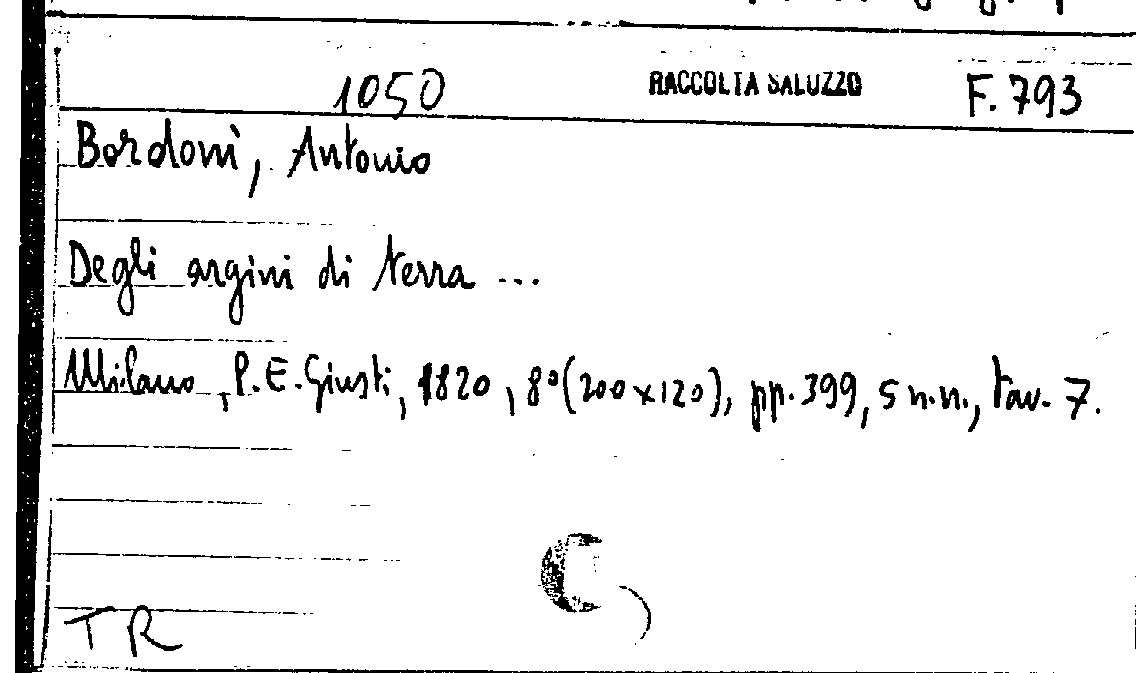 1050 RACCOLTA SALUZZO F. 793
Bordoni, Antonio
Degli argini di terra ...
Milano, P. E. Giusti, 1820, 8° (200x120), pp. 399, 5 n.n., tav. 7.
TR